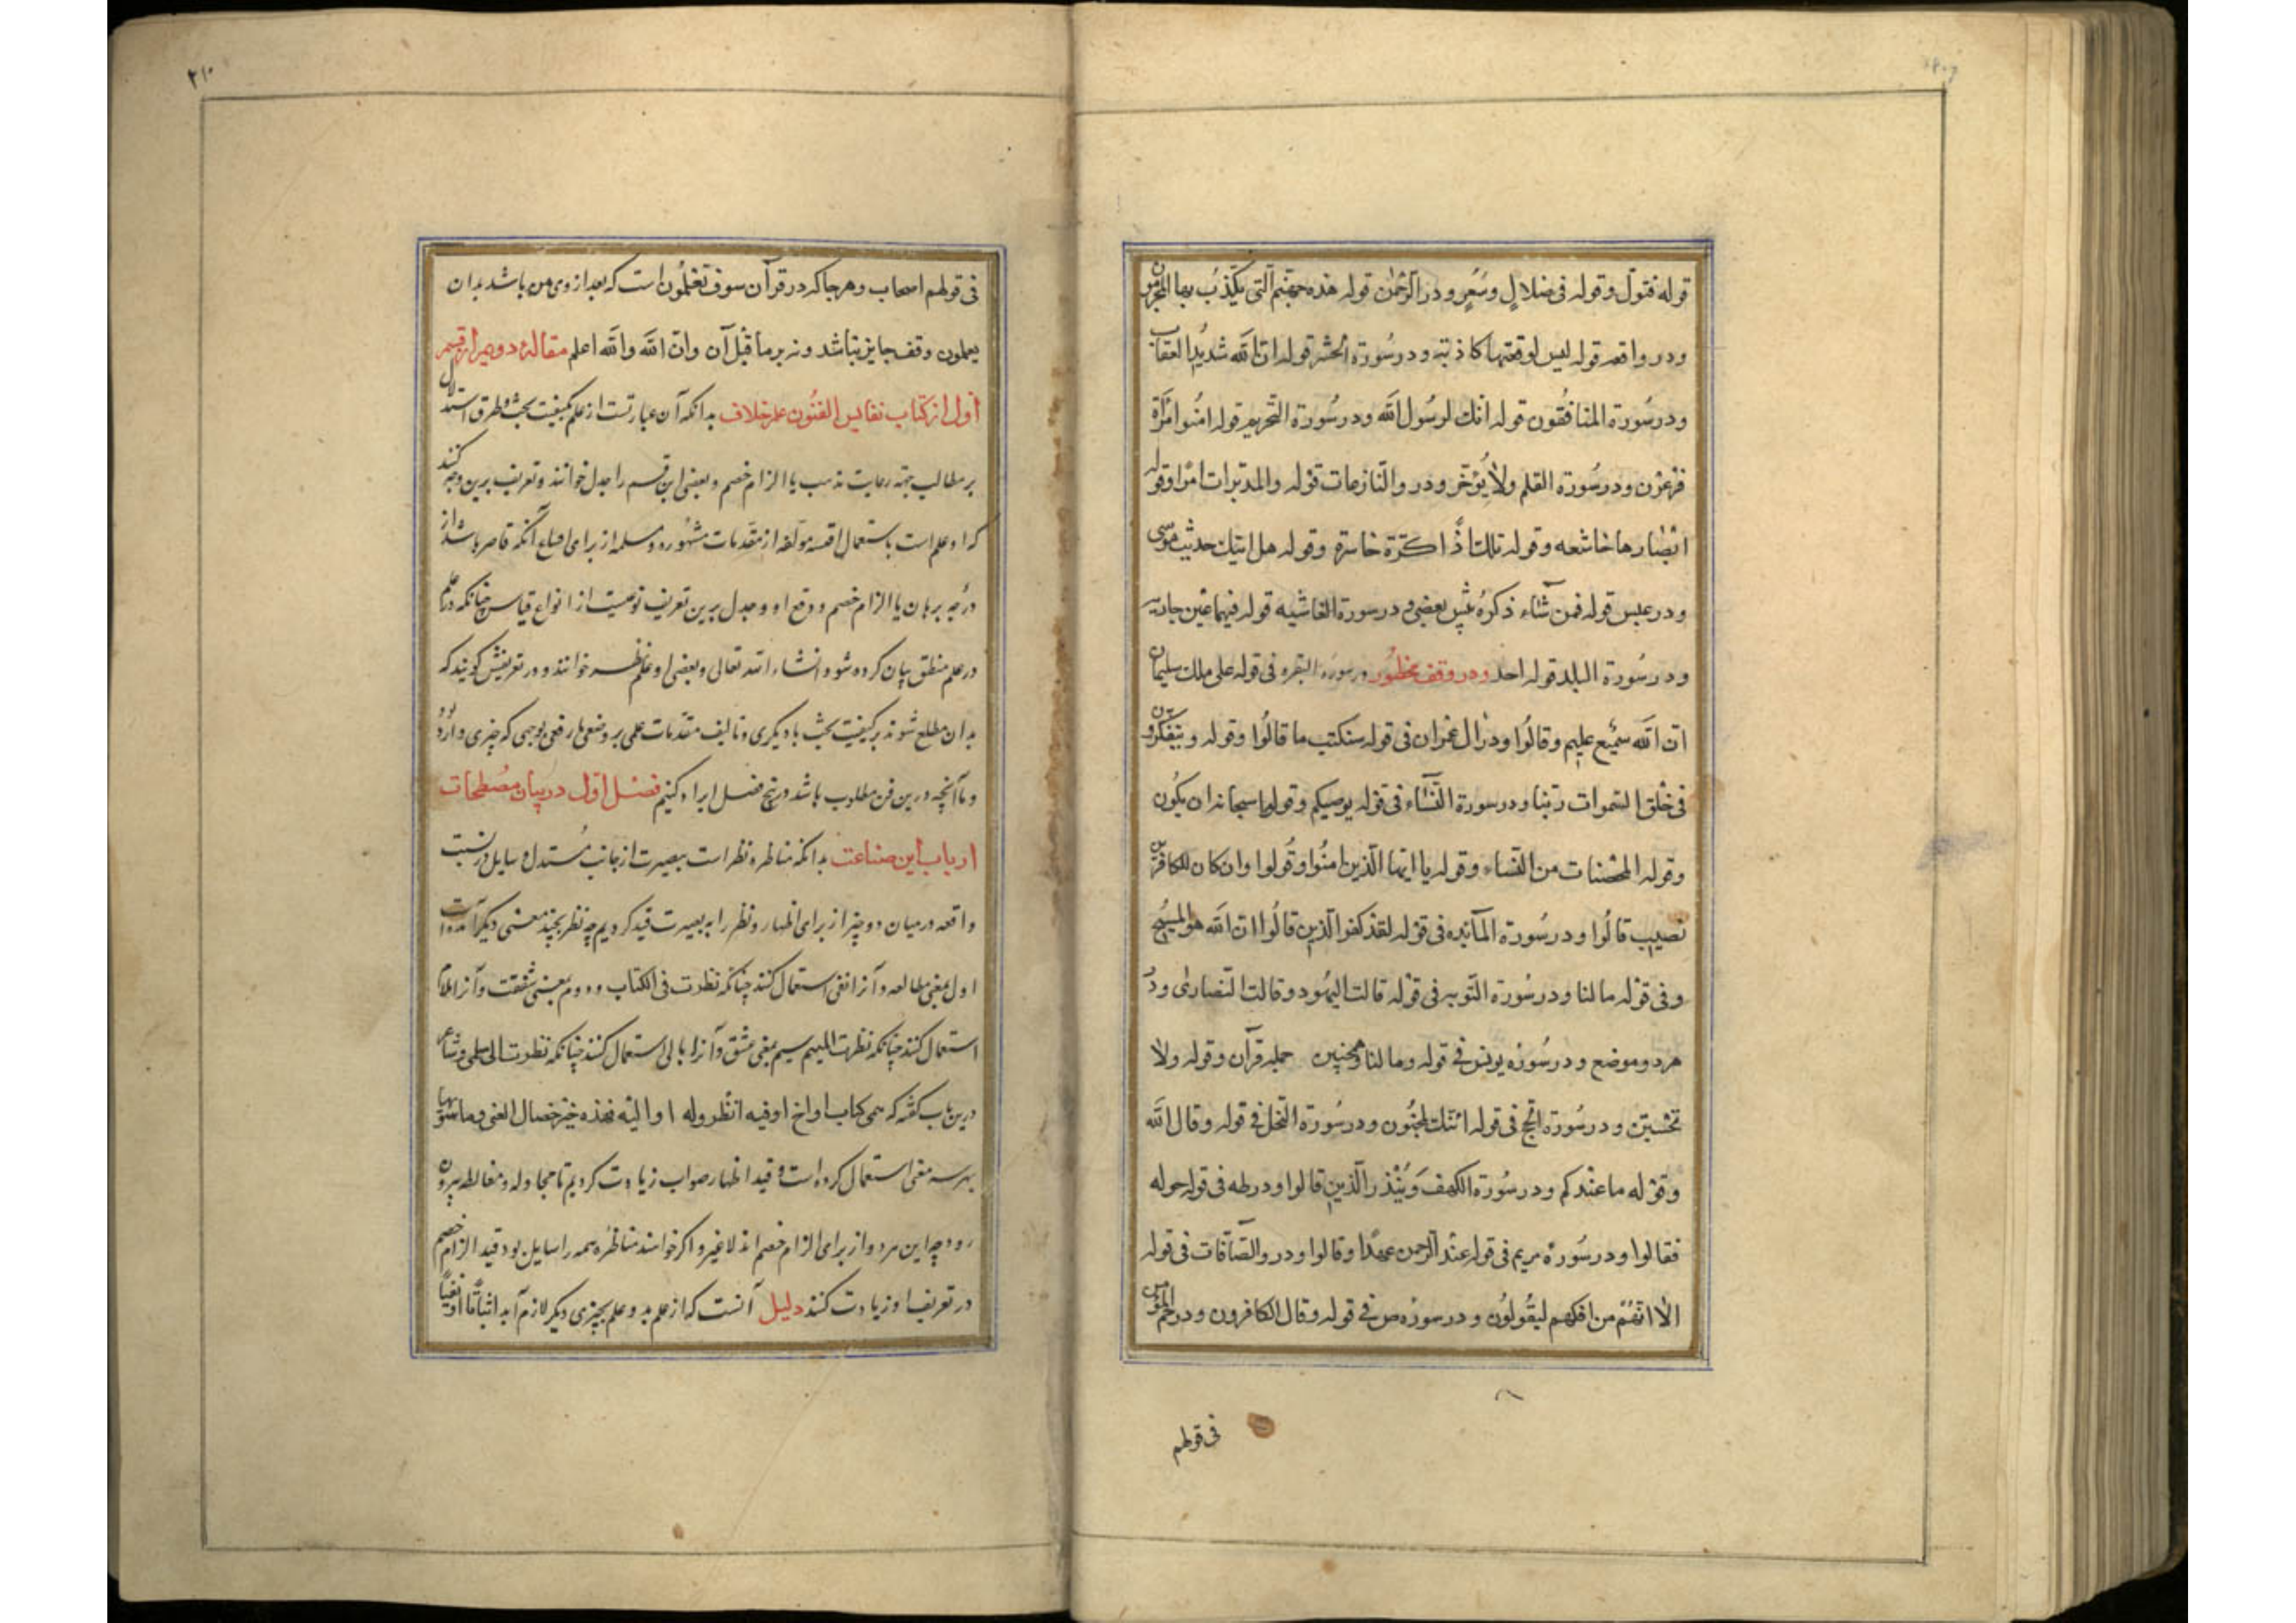 قوله فتول وقوله فی ضلال وسعر و در الرحمن قوله هذه جهنم التی یکذب بها المجرمون
و در واقعه قوله لیس لوقعتها کاذبة و در سورة الحشر قوله ان الله شدید العقاب
و در سورة المنافقون قوله انك لرسول الله و در سورة التحریم قوله امنوا امرأة
فرعون و در سورة القلم ولا یؤخر و در والنازعات قوله والمدبرات امرا وقوله
ابصارها خاشعه وقوله تلك اذا كرّة خاسرة وقوله هل اتیك حدیث موسی
و در عبس قوله فمن شاء ذکره عند بعضی و در سورة الغاشیه قوله فیها عین جاریة
و در سورة البلد قوله احد و در وقف محظور در سورة البقره فی قوله علی ملك سلیمان
ان الله سمیع علیم وقالوا و در ال عمران فی قوله سنكتب ما قالوا وقوله ویتفكرون
فی خلق السموات ربنا و در سورة النساء فی قوله یوصیكم وقوله سبحانه ان یكون
وقوله المحصنات من النساء وقوله یا ایها الذین امنوا وقولوا وان كان للكافرین
نصیب قالوا و در سورة المآئده فی قوله لقد كفر الذین قالوا ان الله هو المسیح
وفی قوله مالنا و در سورة التوبه فی قوله قالت الیهود وقالت النصاری و در
هر دو موضع و در سوره یونس فی قوله ومالنا همچنین جمله قرآن وقوله ولا
تحسبن و در سورة الحج فی قوله انك لمجنون و در سورة النحل فی قوله وقال الله
وقوله ما عندكم و در سورة الكهف وینذر الذین قالوا و در طه فی قوله حوله
فقالوا و در سورة مریم فی قوله عند الرحمن عهدا وقالوا و در والصآفات فی قوله
الا انهم من افكهم لیقولون و در سوره ص فی قوله وقال الكافرون و در حم المؤمن
فی قولهم
٢١٠
فی قولهم اصحاب وهر جا که در قرآن سوف تعلمون است که بعد از وی من باشد بدان
یعملون وقف جایز نباشد ونه بر ما قبل آن وان الله والله اعلم مقالهٔ دویم از قسم
اول از کتاب نفایس الفنون علم خلاف بدانکه آن عبارتست از علم بکیفیت بحث وطرق استدلال
بر مطالب جهة رعایت مذهب یا الزام خصم و بعضی این قسم را جدل خوانند و تعریف برین وجه کنند
که او علم است باستعمال اقیسه مؤلفه از مقدمات مشهوره و مسلمه از برای اقناع آنکه قاصر باشد از
درجه برهان یا الزام خصم و دفع او و جدل برین تعریف نوعیست از انواع قیاس چنانکه
در علم منطق بیان کرده شود انشاء الله تعالی و بعضی او را علم نظر خوانند و در تعریفش گویند که
بدان مطلع شوند بر کیفیت بحث با دیگری و تالیف مقدمات علمی بر وضعی یا رفعی بوجهی که چیزی وارد بود
و ما آنچه درین فن مطلوب باشد در پنج فصل ایراد کنیم فصل اول در بیان مصطلحات
ارباب این صناعت بدانکه مناظره نظر است ببصیرت از جانب مستدل و سایل در نسبت
واقعه در میان دو چیز از برای اظهار و نظر را به بصیرت قید کردیم چه نظر بچند معنی دیگر آمده است
اول بمعنی مطالعه و آنرا بفی استعمال کنند چنانکه نظرت فی الکتاب و دوم بمعنی شفقت و آنرا بلام
استعمال کنند چنانکه نظرت لهم سیم بمعنی عشق و آنرا بالی استعمال کنند چنانکه نظرت الی سلمی و شاعر
درین باب گفته که کتاب او فیه انظر وله او الیه فهذه خیر خصال الفتی وما سویها
بهر سه معنی استعمال کرده است و قید اظهار صواب زیادت کردیم تا مجادله و مغالطه بیرون
رود چه این هر دو از برای الزام خصم اند لا غیر و اگر خواهند مناظره همه را شامل بود قید الزام خصم
در تعریف او زیادت کنند دلیل آنست که از علم بدو علم بچیزی دیگر لازم آید اثباتا او نفیا